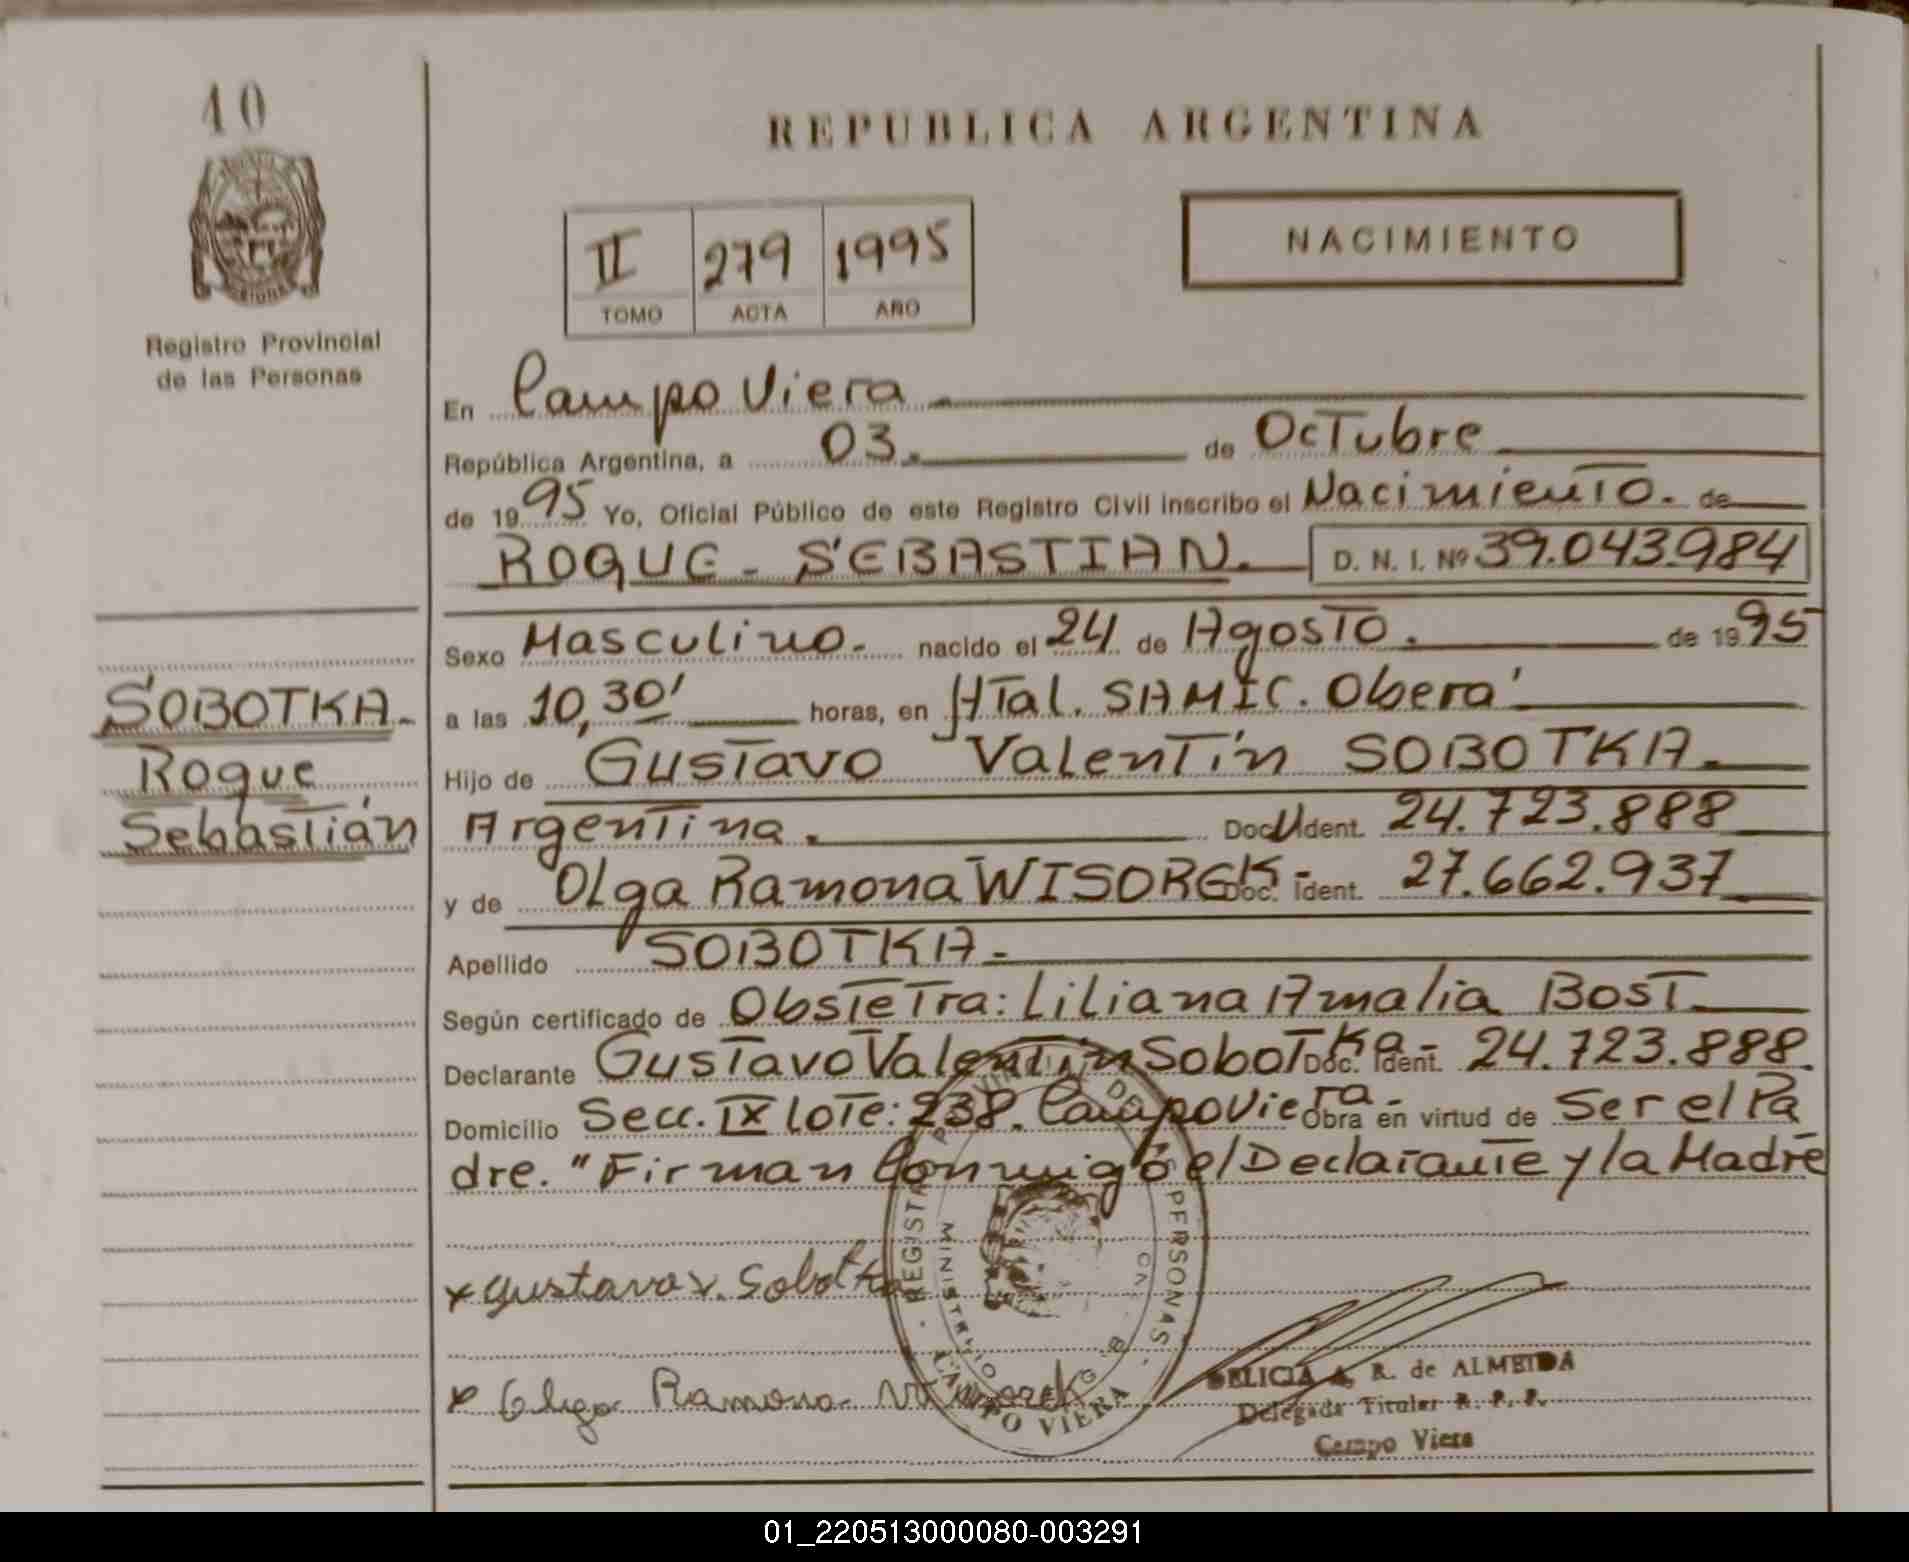 10
REPUBLICA ARGENTINA
NACIMIENTO
II 279 1995
TOMO ACTA AÑO
Registro Provincial
de las Personas
En Campo Viera.
República Argentina, a 03. de Octubre
de 1995 Yo, Oficial Público de este Registro Civil inscribo el Nacimiento. de
ROQUE - SEBASTIAN. D. N. I. Nº 39.043.984
Sexo Masculino. nacido el 24 de Agosto. de 1995
SOBOTKA.
Roque
Sebastián
a las 10,30' horas, en HTal. SAMIC. Oberá
Hijo de Gustavo Valentín SOBOTKA.
Argentina. Doc. Ident. 24.723.888
y de Olga Ramona WISOREK - Doc. Ident. 27.662.937
Apellido SOBOTKA.
Según certificado de Obstetra: Liliana Amalia BOST
Declarante Gustavo Valentín Sobotka - Doc. Ident. 24.723.888.
Domicilio Secc. IX Lote: 238. Campo Viera - Obra en virtud de Ser el Pa
dre. "Firman Conmigo el Declarante y la Madre
x Gustavo V. Sobotka
x Olga Ramona
REGISTRO DE PERSONAS
MINISTERIO
CAMPO VIERA
DELICIA A. R. de ALMEIDA
Delegada Titular R. P. P.
Campo Viera
01_220513000080-003291